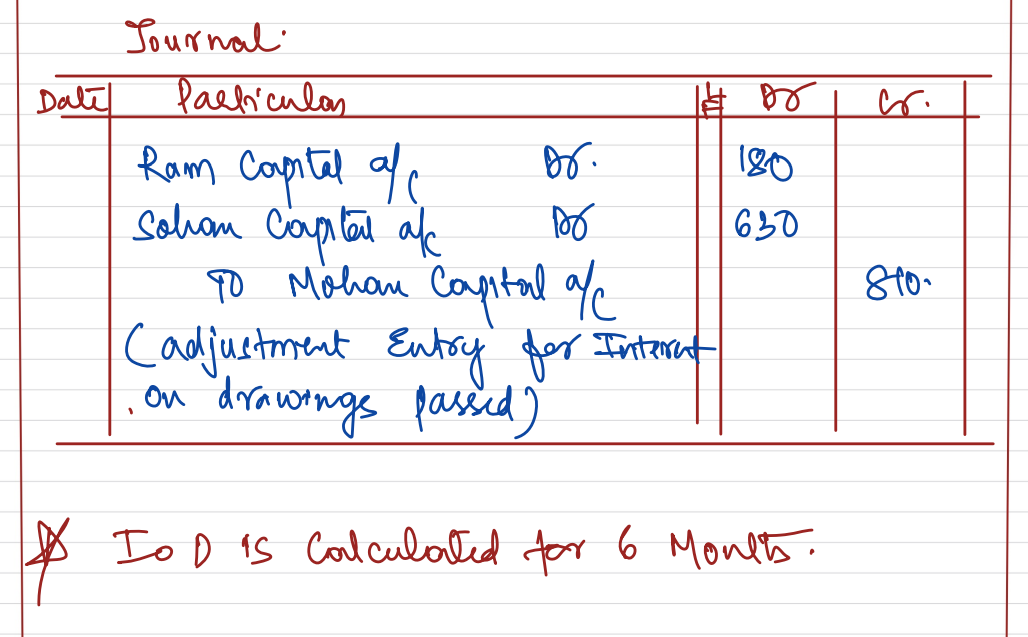 Journal.
Date Particulars LF Dr Cr.
Ram Capital a/c Dr. 180
Sohan Capital a/c Dr 630
To Mohan Capital a/c 810.
(adjustment Entry for Interest
on drawings passed)
IoD is Calculated for 6 Months.